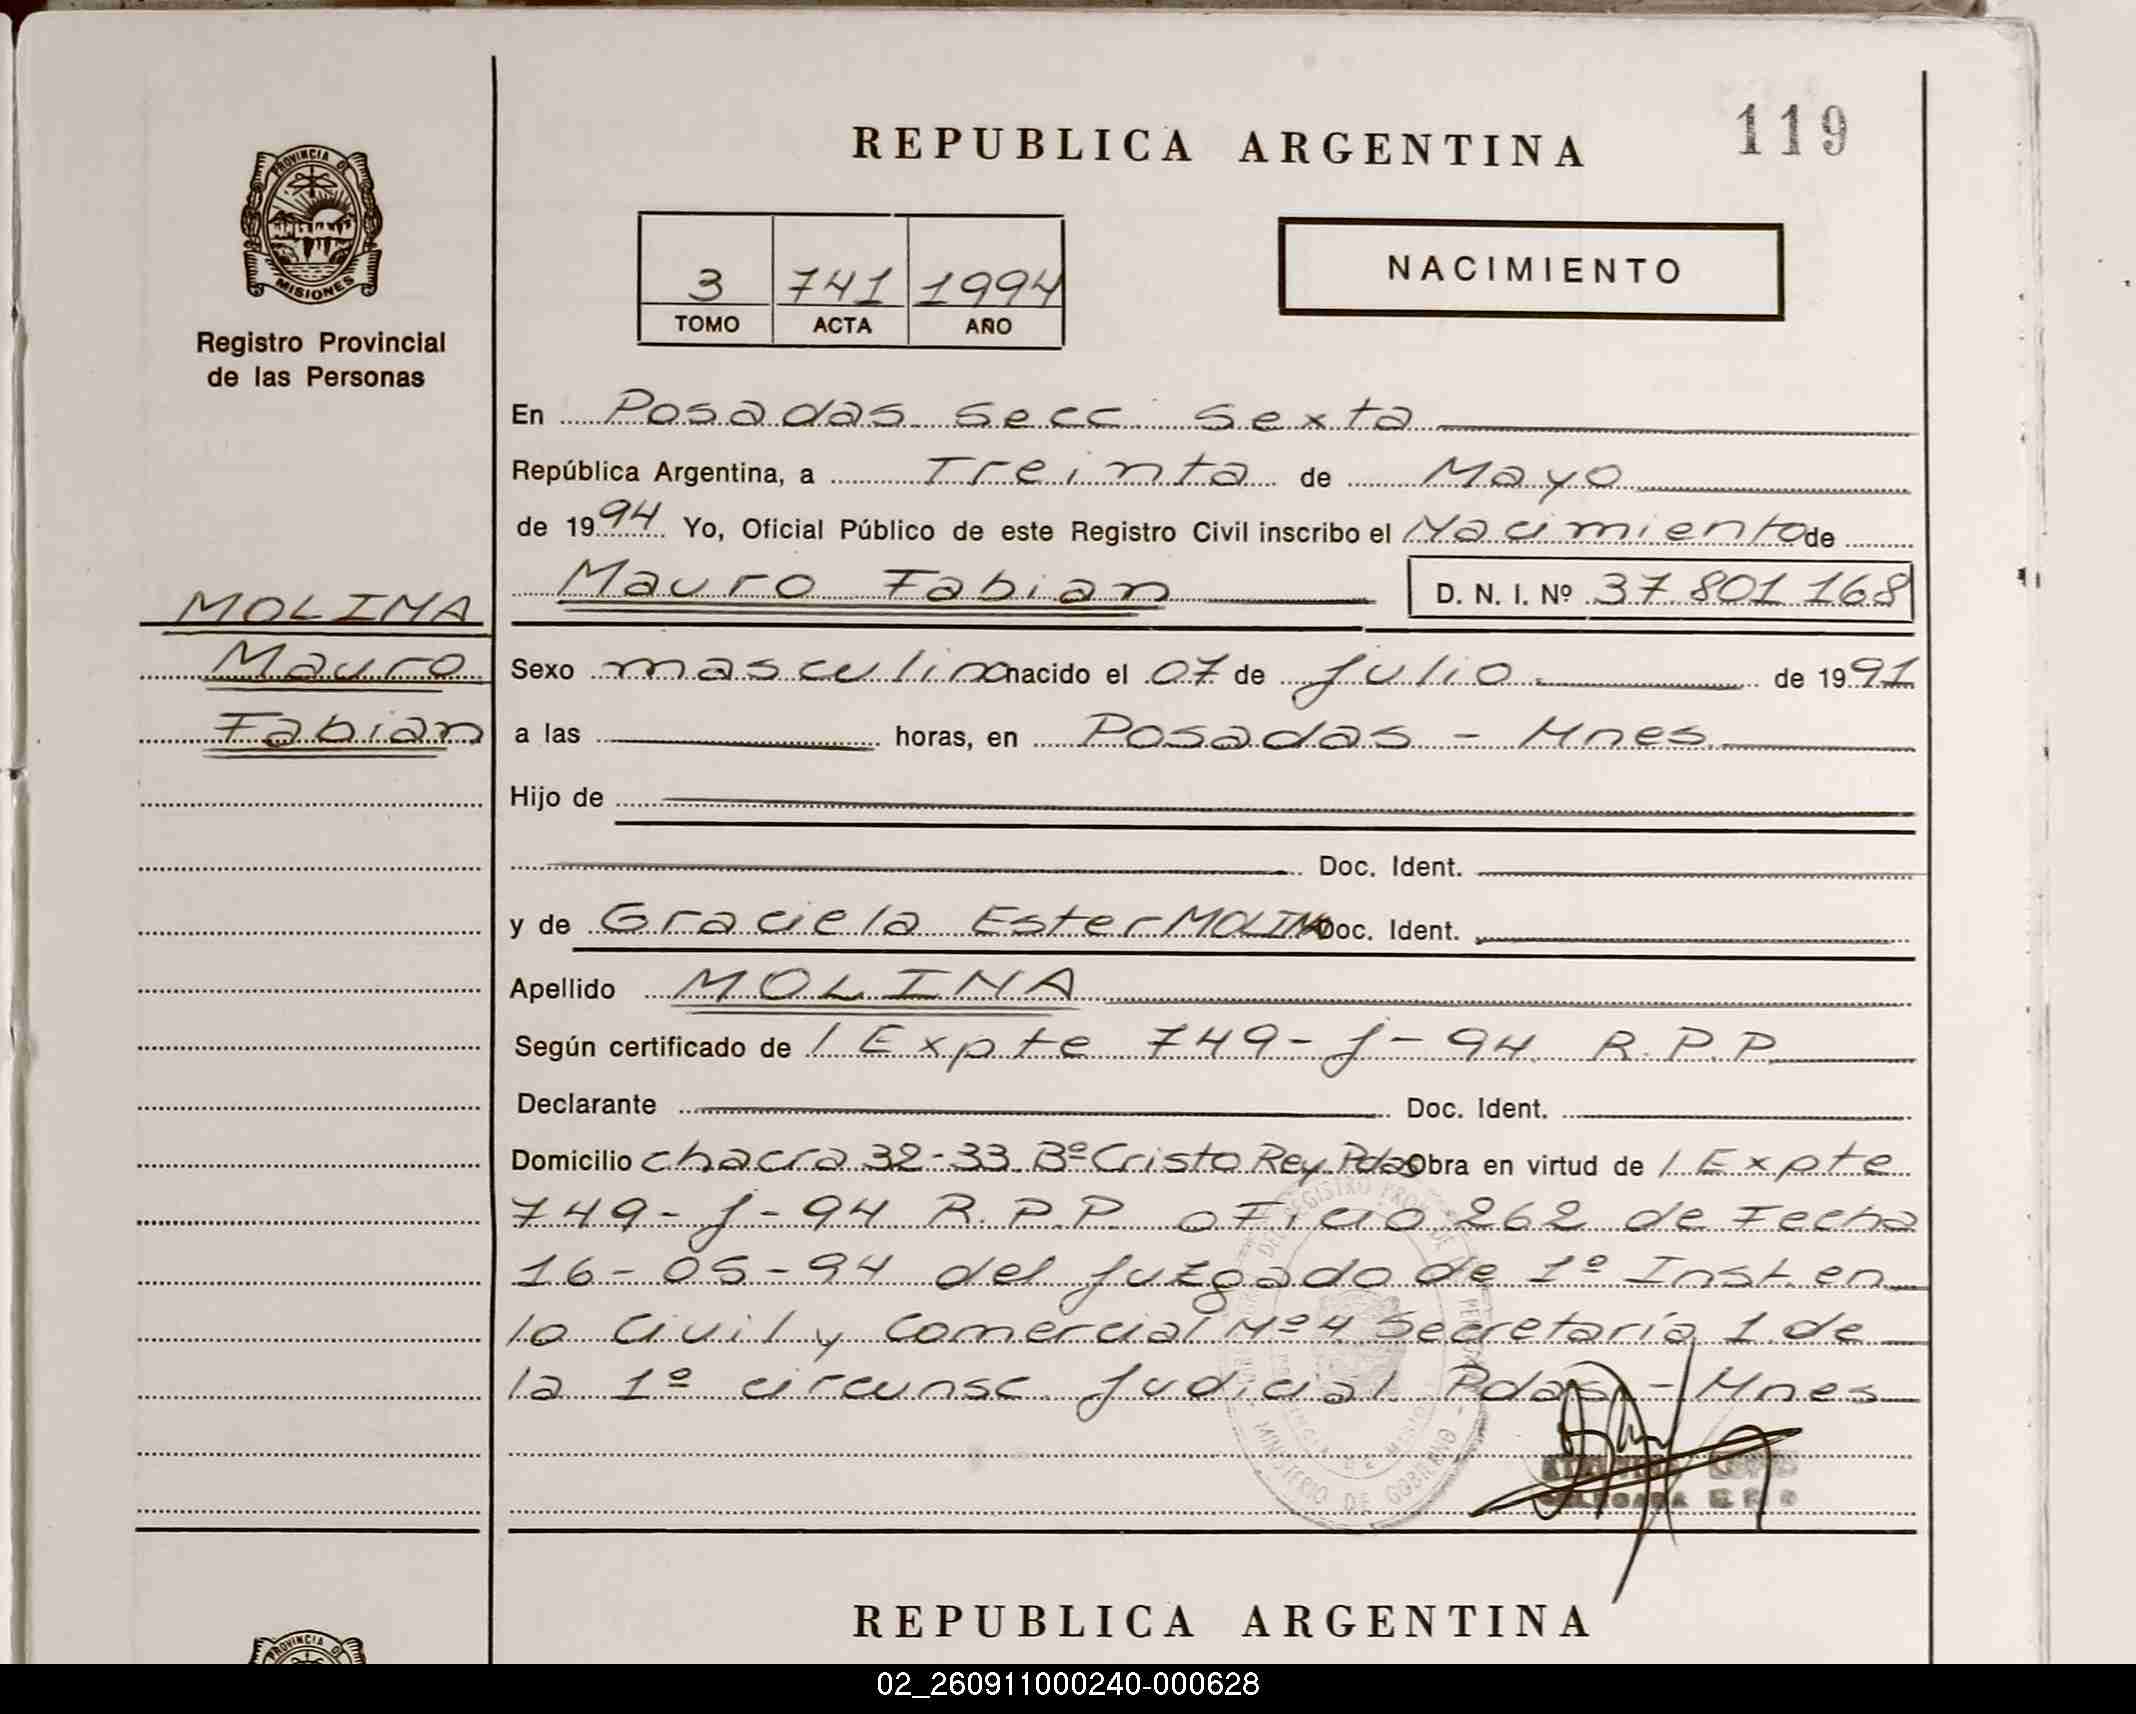 REPUBLICA ARGENTINA
119
PROVINCIA DE
MISIONES
Registro Provincial
de las Personas
3 741 1994
TOMO ACTA AÑO
NACIMIENTO
En Posadas Secc. Sexta
República Argentina, a Treinta de Mayo
de 1994 Yo, Oficial Público de este Registro Civil inscribo el Nacimiento de
Mauro Fabian D. N. I. Nº 37.801.168
MOLINA
Mauro
Fabian
Sexo masculino nacido el 07 de Julio de 1991
a las horas, en Posadas - Mnes
Hijo de
Doc. Ident.
y de Graciela Ester MOLINA Doc. Ident.
Apellido MOLINA
Según certificado de / Expte 749-J-94 R.P.P
Declarante Doc. Ident.
Domicilio chacra 32-33 Bº Cristo Rey Pdas Obra en virtud de / Expte
749-J-94 R.P.P. oficio 262 de Fecha
16-05-94 del Juzgado de 1º Inst. en
lo Civil y Comercial Nº 4 Secretaría 1 de
la 1º circunsc. Judicial. Pdas - Mnes
MINISTERIO DE GOBIERNO
REPUBLICA ARGENTINA
PROVINCIA DE
02_260911000240-000628